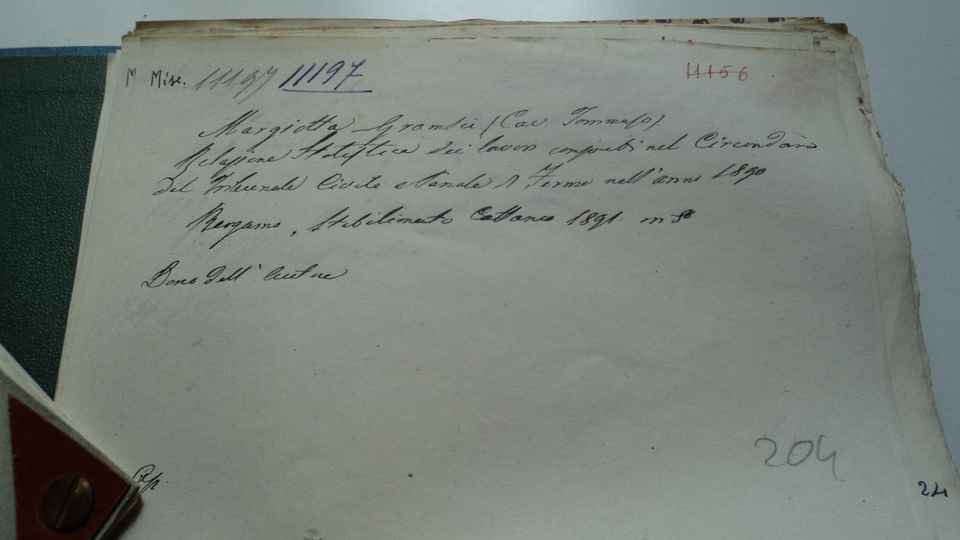 M Misc. 11197 11197
11156
Margiotta Gramsci (Cav Tommaso)
Relazione Statistica dei lavori compiuti nel Circondario
del Tribunale Civile e Penale di Fermo nell'anno 1890
Bergamo, Stabilimento Cattaneo 1891 in 8°
Dono dell'Autore
204
24